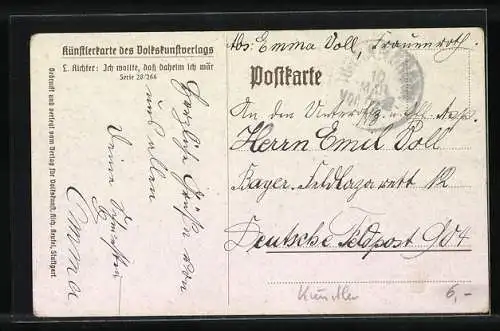 Künstlerkarte des Volkskunstverlags
L. Richter: Ich wollte, daß daheim ich wär
Serie 28/266
Gedruckt und verlegt vom Verlag für Volkskunst, Rich. Keutel, Stuttgart.
Herzliche Grüße von
uns allen
Deine Schwester
Emma
Abs: Emma Voll, Frauenroth.
Postkarte
10
MAI
An den Unteroffz.
Herrn Emil Voll
Bayer. Feldlazarett 12
Deutsche Feldpost 904
Künstler
6,-